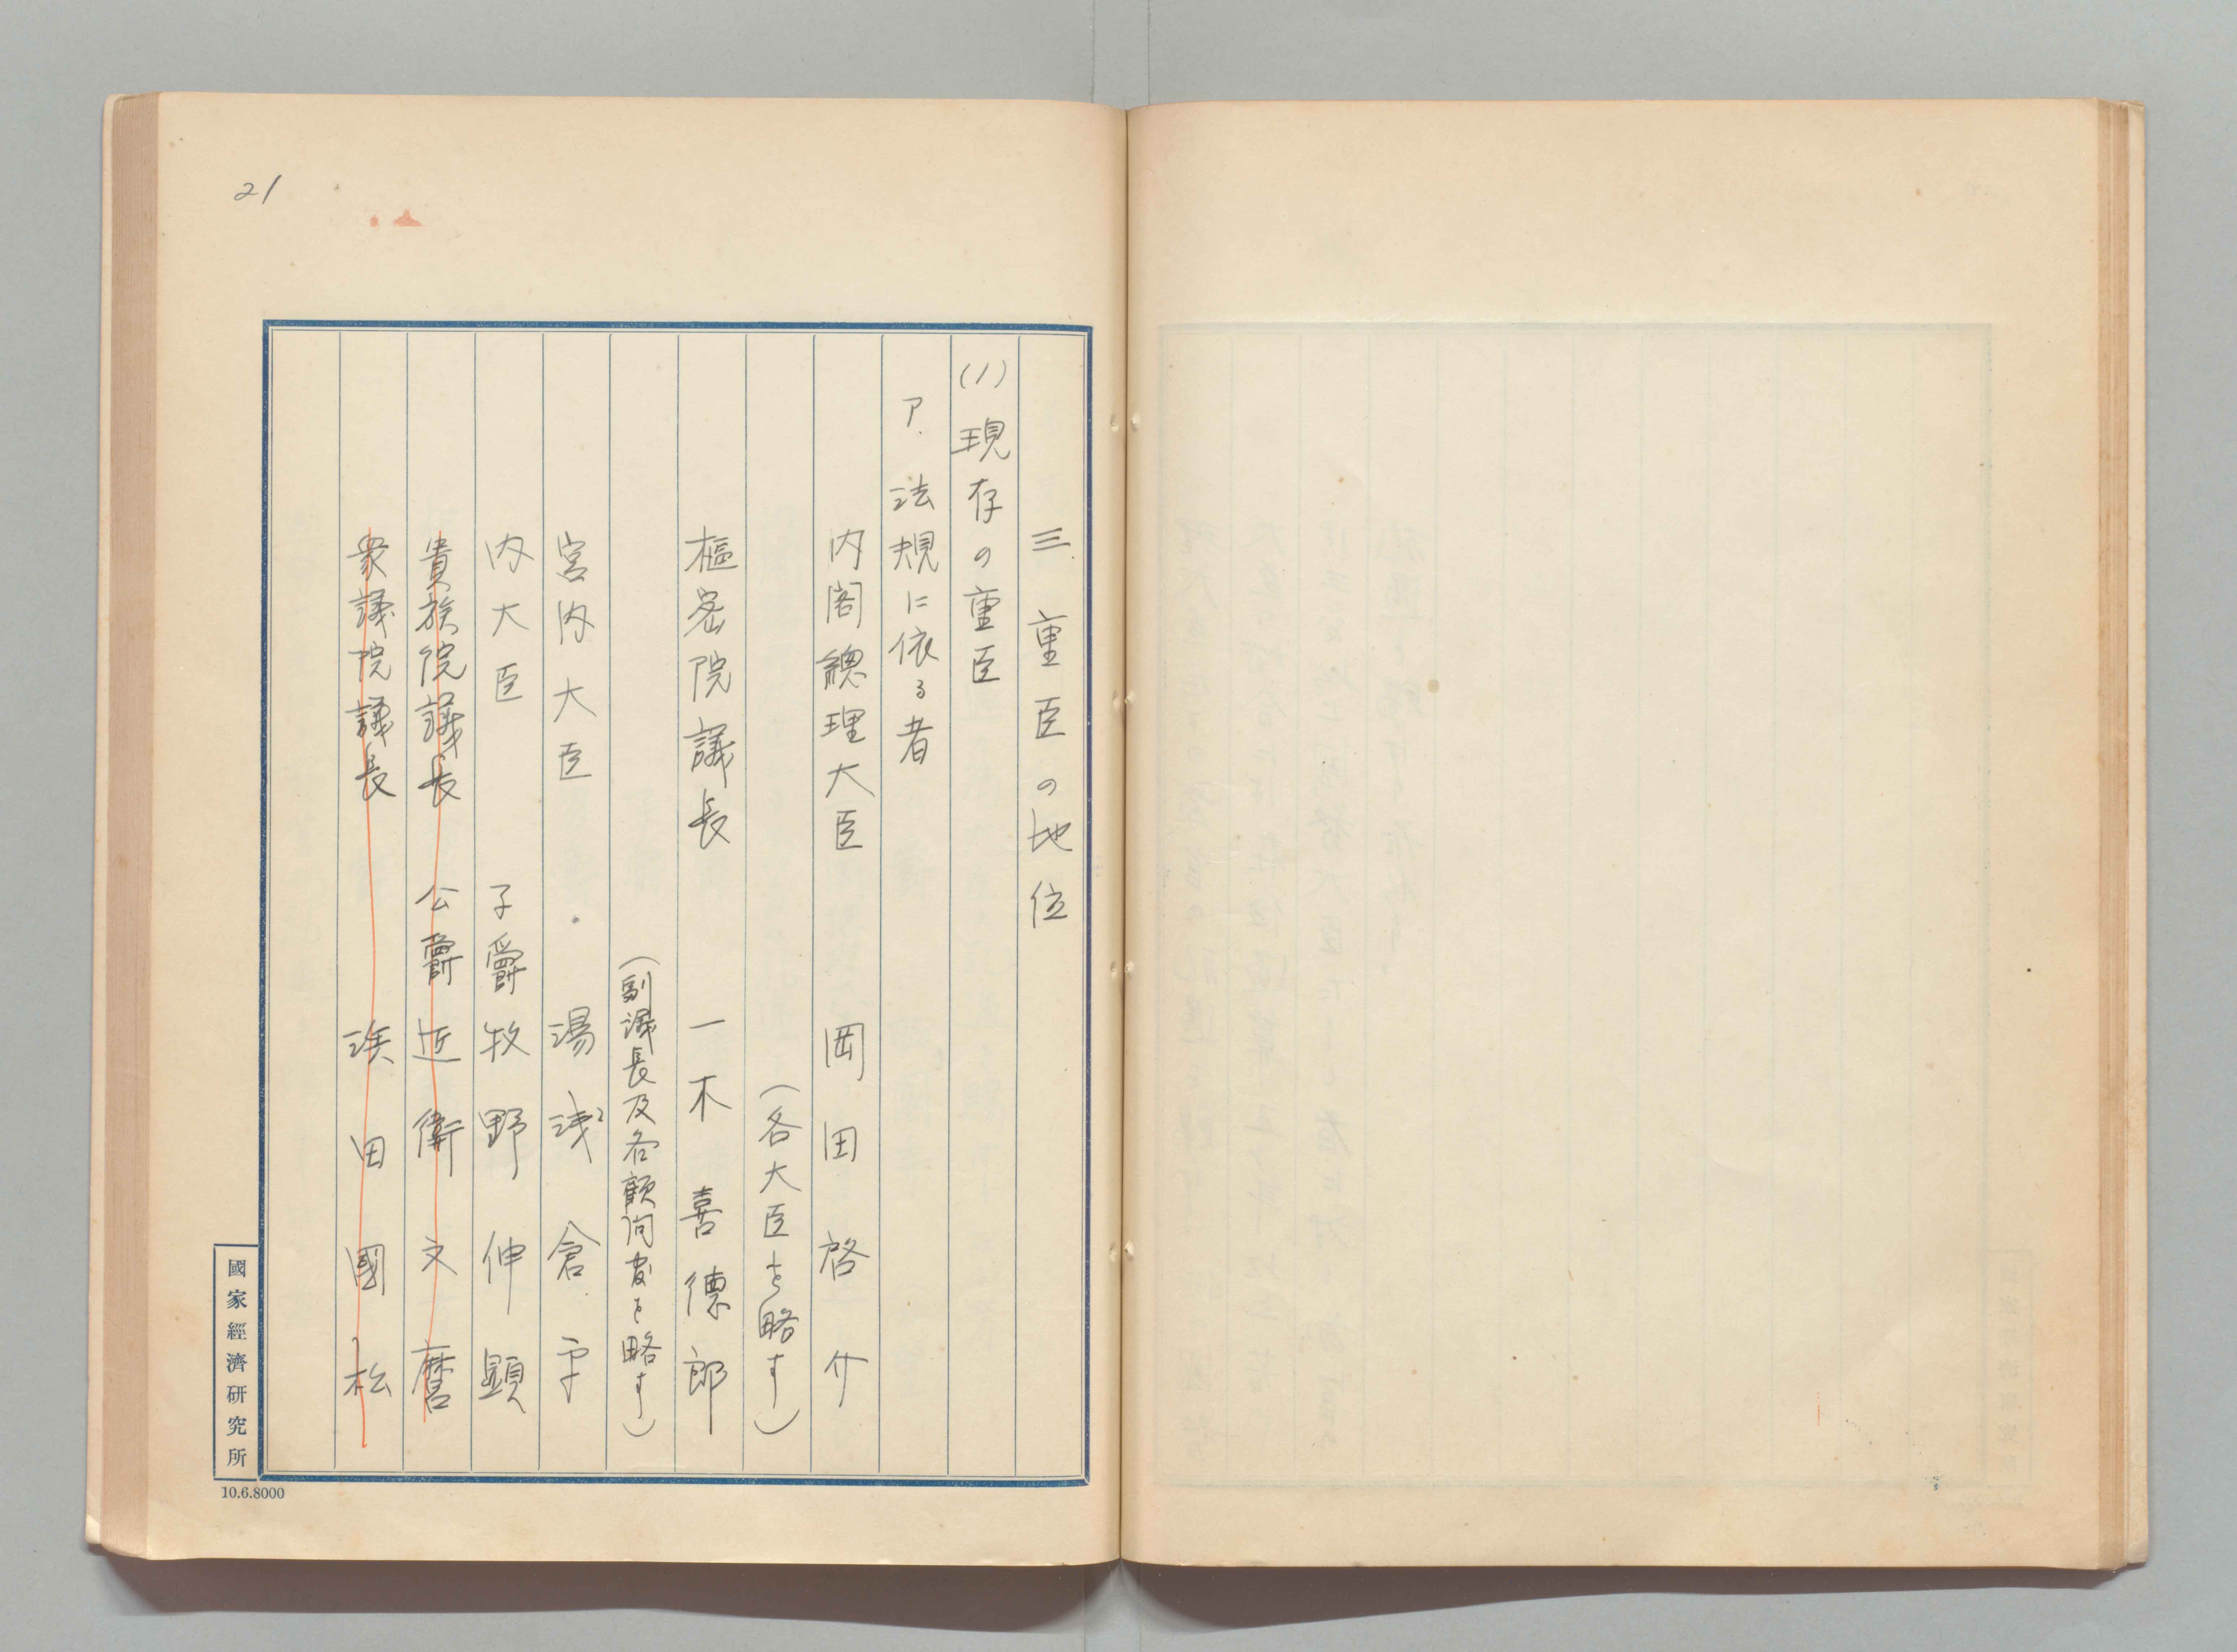 21
三 重臣の地位
(1) 現存の重臣
ア. 法規に依る者
内閣總理大臣 岡田啓介
(各大臣を略す)
樞密院議長 一木喜德郎
(副議長及各顧問官を略す)
宮内大臣 湯浅倉平
内大臣 子爵牧野伸顕
貴族院議長 公爵近衛文麿
衆議院議長 濱田國松
國家經濟研究所
10.6.8000